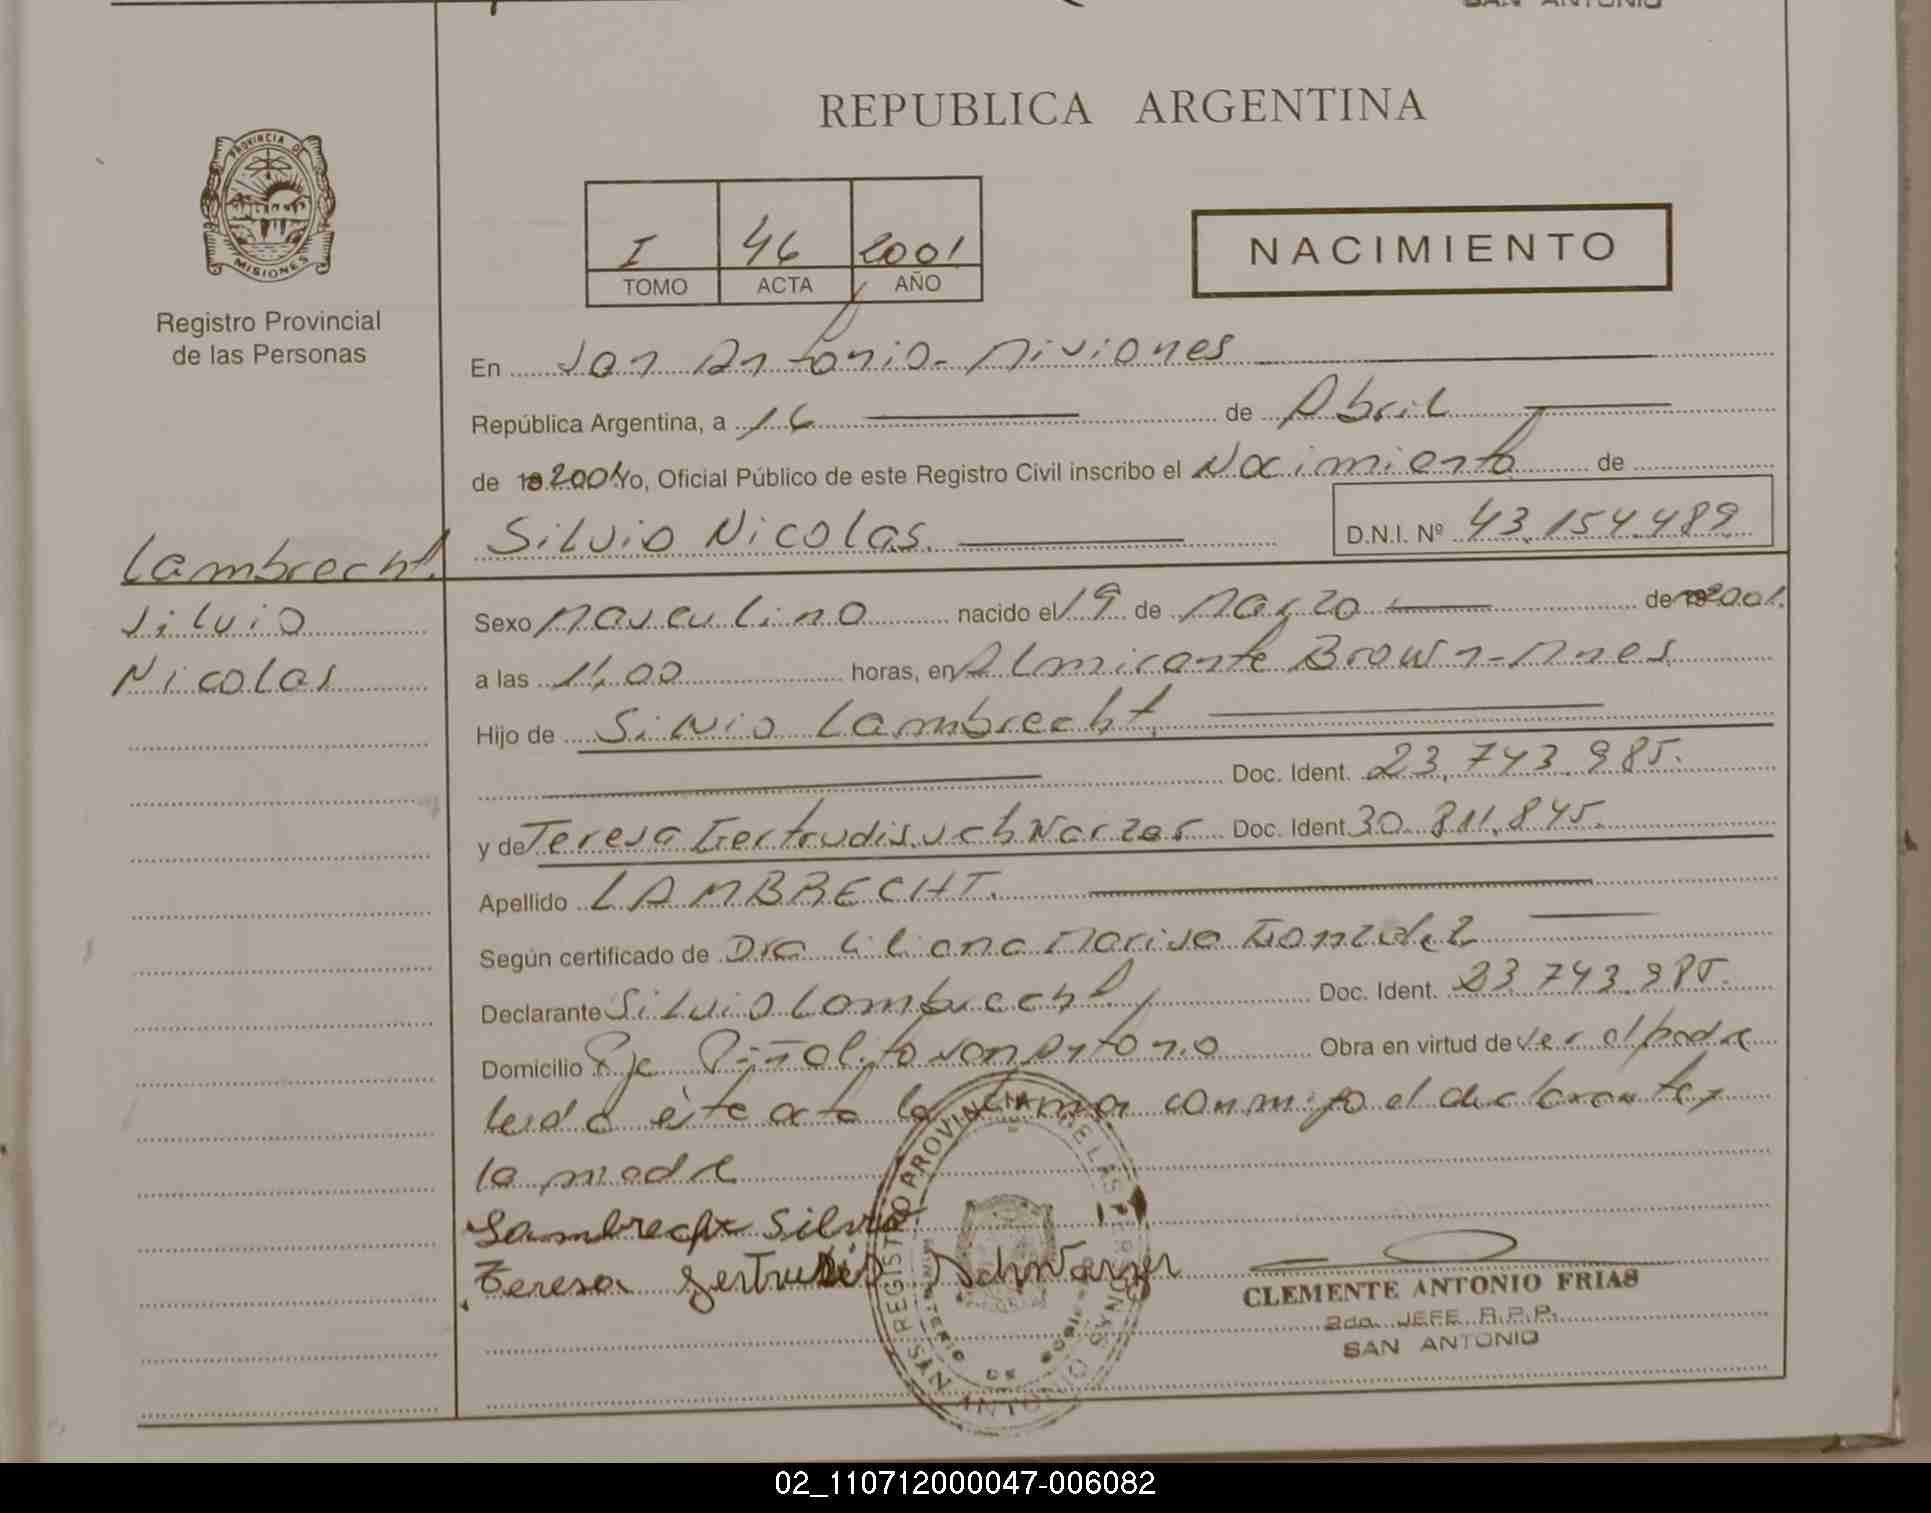 SAN ANTONIO
REPUBLICA ARGENTINA
PROVINCIA DE
MISIONES
Registro Provincial
de las Personas
I 46 2001
TOMO ACTA AÑO
NACIMIENTO
En San Antonio - Misiones
República Argentina, a 16 de Abril
de 2001 Yo, Oficial Público de este Registro Civil inscribo el Nacimiento de
Silvio Nicolas. D.N.I. Nº 43.154.489
Lambrecht.
Silvio
Nicolas
Sexo Masculino nacido el 19 de Marzo de 2001.
a las 11,00 horas, en Almirante Brown - Mnes
Hijo de Silvio Lambrecht.
Doc. Ident. 23.743.985.
y de Teresa Gertrudis schwarzer Doc. Ident 30.811.845.
Apellido LAMBRECHT.
Según certificado de Dra Liliana Marisa Gonzalez
Declarante Silvio Lambrecht, Doc. Ident. 23.743.985.
Domicilio Pje Piñalito san Antonio Obra en virtud de ser el padre
leida éste acta la firma conmigo el declarante y
la madre
Lambrecht Silvio
Teresa Gertrudis Schwarzer
REGISTRO PROVINCIAL DE LAS PERSONAS
MINISTERIO DE GOBIERNO
SAN ANTONIO
CLEMENTE ANTONIO FRIAS
2do. JEFE R.P.P.
SAN ANTONIO
02_110712000047-006082